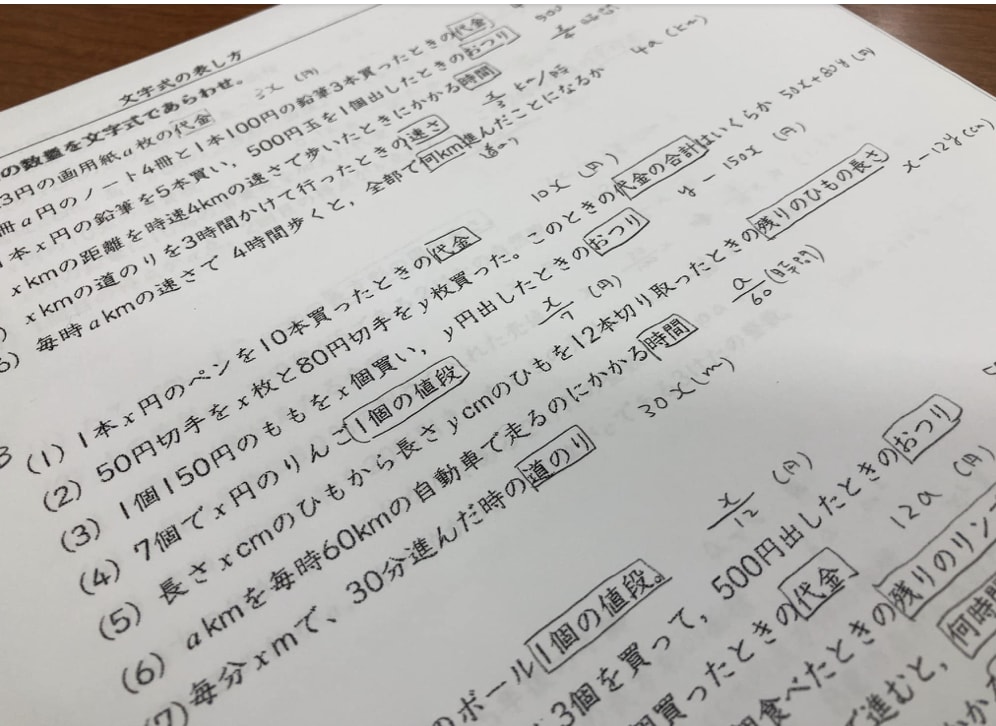 文字式の表し方
の数量を文字式であらわせ。
3円の画用紙a枚の代金 3x (円)
冊a円のノート4冊と1本100円の鉛筆3本買ったときの代金
1本x円の鉛筆を5本買い，500円玉を1個出したときのおつり
xkmの距離を時速4kmの速さで歩いたときにかかる時間
xkmの道のりを3時間かけて行ったときの速さ x/3 km/時
毎時akmの速さで 4時間歩くと，全部で何km進んだことになるか 4a (km)
(1) 1本x円のペンを10本買ったときの代金 10x (円)
(2) 50円切手をx枚と80円切手をy枚買った。このときの代金の合計はいくらか 50x+80y (円)
(3) 1個150円のももをx個買い，y円出したときのおつり y-150x (円)
(4) 7個でx円のりんご1個の値段 x/7 (円)
(5) 長さxcmのひもから長さycmのひもを12本切り取ったときの残りのひもの長さ x-12y (cm)
(6) akmを毎時60kmの自動車で走るのにかかる時間 a/60 (時間)
(7) 毎分xmで、30分進んだ時の道のり 30x (m)
のボール1個の値段。 x/12 (円)
3個を買って，500円出したときのおつり
個買ったときの代金 12a (円)
個食べたときの残りのリン
で進むと，何時間